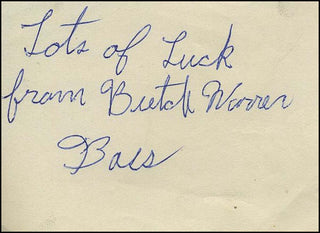 Lots of Luck
from Butch Warren
Bass